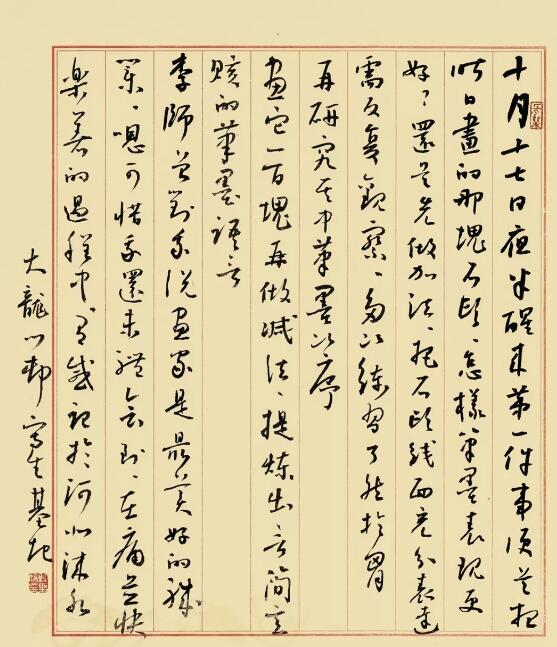 十月十七日夜半醒来第一件事须是把
昨日画的那块石头、怎样笔墨表现更
好、还是先做加法、把石头线面充分表达
需反复观察、多次练习了然于胸
再研究其中笔墨次序
画它一百块再做减法、提炼出言简意
赅的笔墨语言
李师曾对我说画家是最美好的职
业、嗯可惜我还未体会到、在痛并快
乐着的过程中有感记于河北涞水
大龙门村写生基地